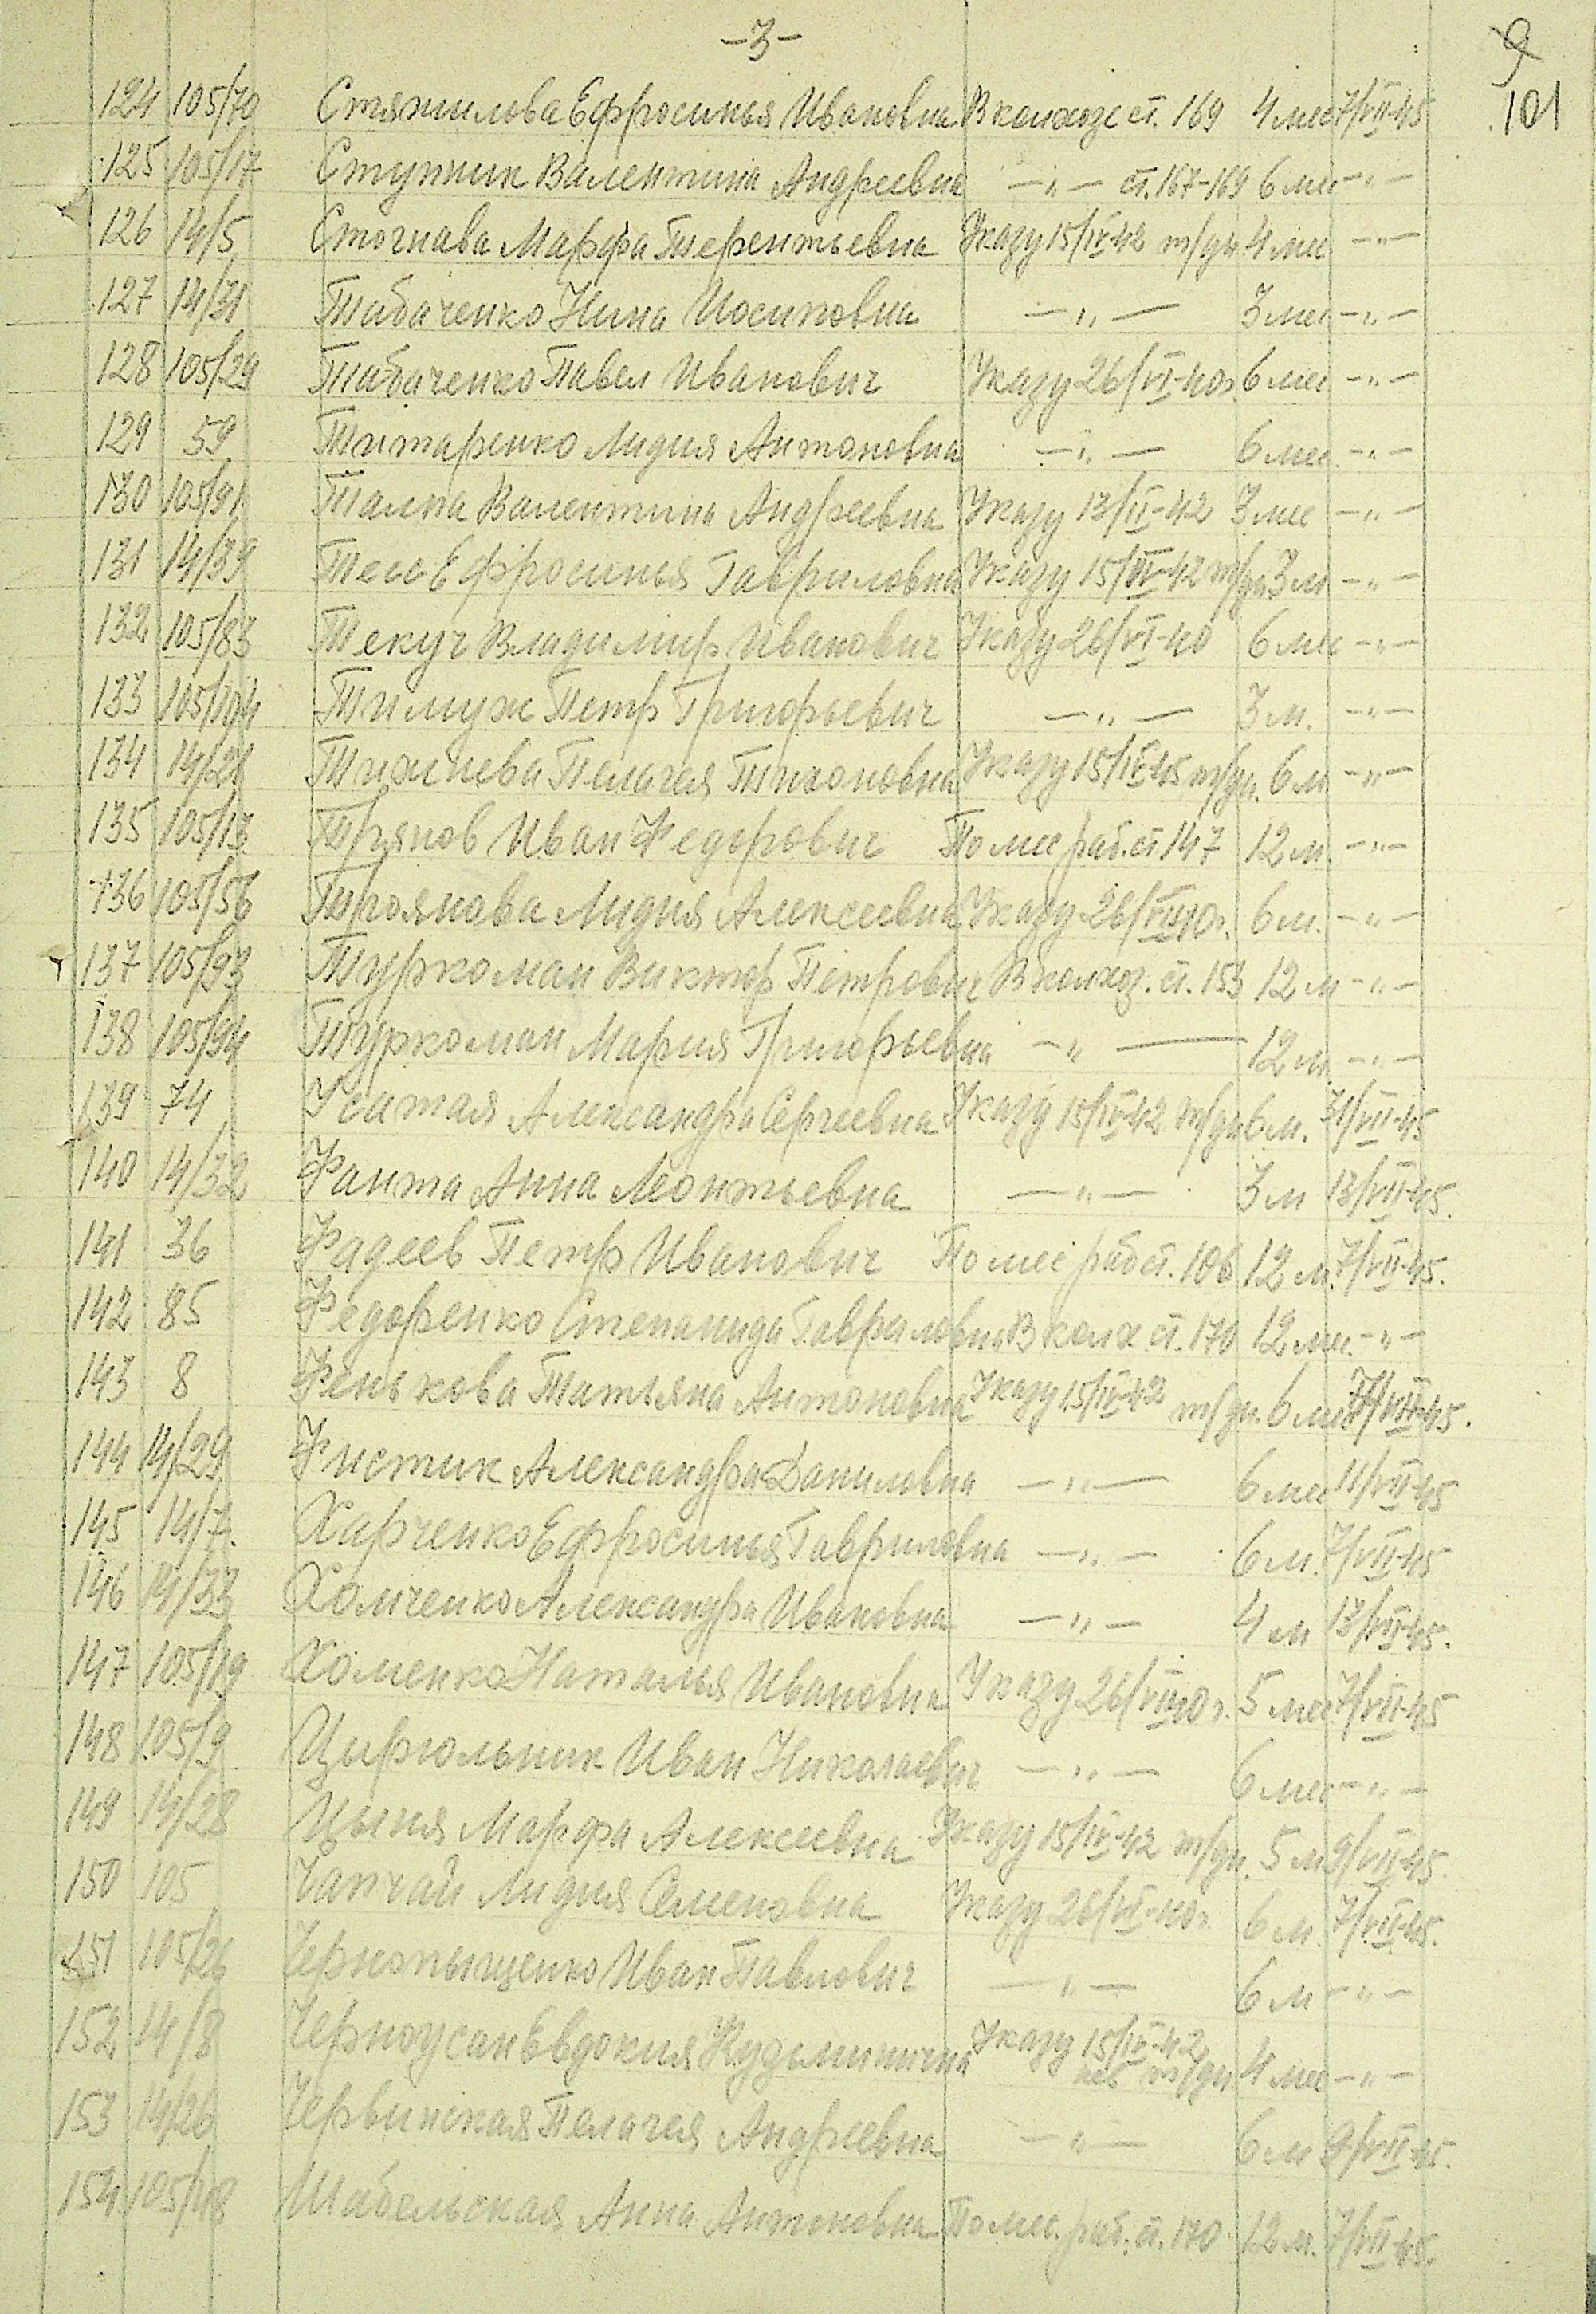 -3-
9
101
124 105/70 Стяжилова Ефросинья Ивановна В колхозе ст. 169 4 мес 7/VII-45
125 105/17 Ступник Валентина Андреевна -"- ст. 167-169 6 мес -"-
126 14/5 Стогнава Марфа Терентьевна Указу 15/IV-42 т/дн. 4 мес -"-
127 14/31 Табаченко Нина Иосиповна -"- 3 мес -"-
128 105/29 Табаченко Павел Иванович Указу 26/VI-40г. 6 мес -"-
129 59 Титаренко Лидия Антоновна -"- 6 мес -"-
130 105/91 Талпа Валентина Андреевна Указу 13/II-42 3 мес -"-
131 14/39 Тесь Ефросинья Гавриловна Указу 15/IV-42 т/дн 3 м -"-
132 105/83 Текуч Владимир Иванович Указу 26/VI-40 6 мес -"-
133 105/104 Тимуж Петр Григорьевич -"- 3 м. -"-
134 14/21 Тижнева Пелагея Тихоновна Указу 15/IV-45 т/дн. 6 м -"-
135 105/13 Трянов Иван Федорович По мес раб. ст 147 12 м. -"-
136 105/56 Троянова Лидия Алексеевна Указу 26/VI-40г. 6 м. -"-
137 105/93 Туркоман Виктор Петрович В колхоз. ст. 153 12 м -"-
138 105/94 Туркоман Мария Григорьевна -"- 12 м -"-
139 74 Усатая Александра Сергеевна Указу 15/IV-42 т/дн 6 м. 31/VII-45
140 14/32 Фанта Анна Леонтьевна -"- 3 м 13/VII-45.
141 36 Фадеев Петр Иванович По мес раб ст. 106 12 м. 7/VII-45.
142 85 Федоренко Степанида Гавриловна В колх. ст. 170 12 мес. -"-
143 8 Фенькова Татьяна Антоновна Указу 15/IV-42 т/дн. 6 мес 7/VII-45.
144 14/29 Фистик Александра Даниловна -"- 6 мес 11/VII-45
145 14/7. Харченко Ефросинья Гавриловна -"- 6 м. 7/VII-45
146 14/33 Хомченко Александра Ивановна -"- 4 м 13/VII-45.
147 105/19 Хоменко Наталья Ивановна Указу 26/VI-40г. 5 мес. 7/VII-45
148 105/9 Цырюльник Иван Николаевич -"- 6 мес -"-
149 14/28 Цыня Марфа Алексеевна Указу 15/IV-42 т/дн. 5 м 9/VII-45.
150 105 Чапчай Лидия Семеновна Указу 26/VI-40г. 6 м. 7/VII-45.
151 105/26 Чернопыщенко Иван Павлович -"- 6 м -"-
152 14/8 Черноусан Евдокия Кузьминична Указу 15/IV-42 т/дн 4 мес -"-
153 14/26 Червинская Пелагея Андреевна -"- 6 м 9/VII-45.
154 105/48 Шабельская Анна Антоновна По мес. раб. ст. 170. 12 м. 7/VII-45.